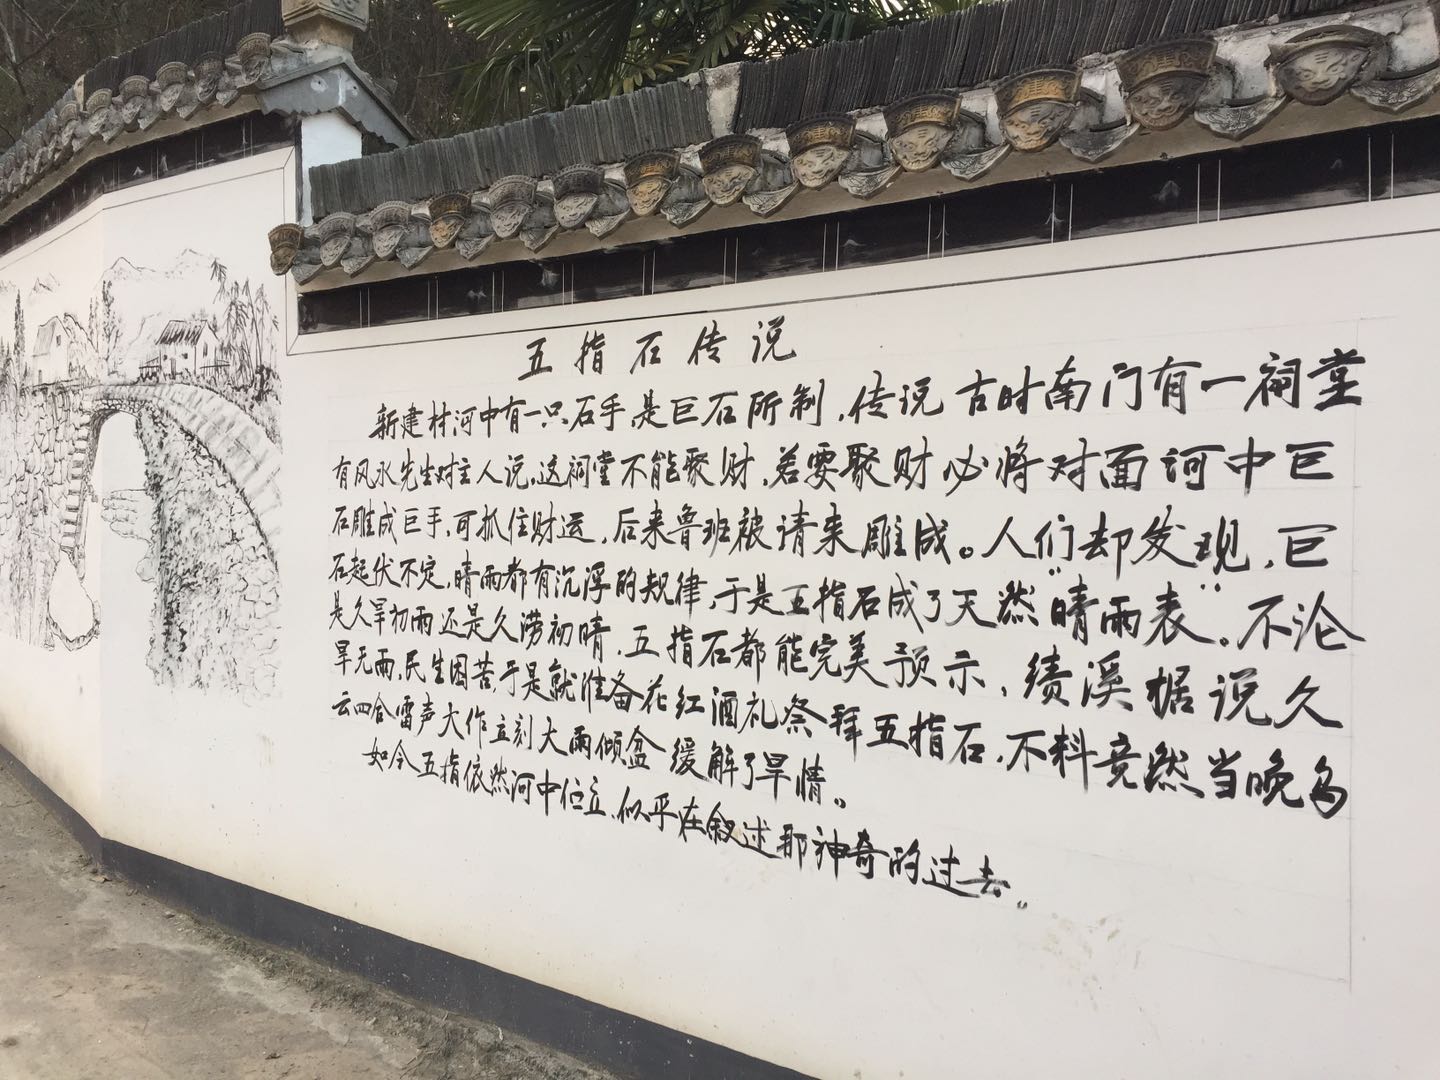 五指石传说
新建村河中有一只石手,是巨石所制,传说古时南门有一祠堂
有风水先生对主人说,这祠堂不能聚财,若要聚财必将对面河中巨
石雕成巨手,可抓住财运,后来鲁班被请来雕成。人们却发现,巨
石起伏不定,晴雨都有沉浮的规律,于是五指石成了天然“晴雨表”。不沦
是久旱初雨还是久涝初晴,五指石都能完美预示,绩溪据说久
旱无雨,民生困苦,于是就准备花红酒礼祭拜五指石,不料竟然当晚乌
云四合雷声大作立刻大雨倾盆缓解了旱情。
如今五指依然河中伫立,似乎在叙述那神奇的过去。